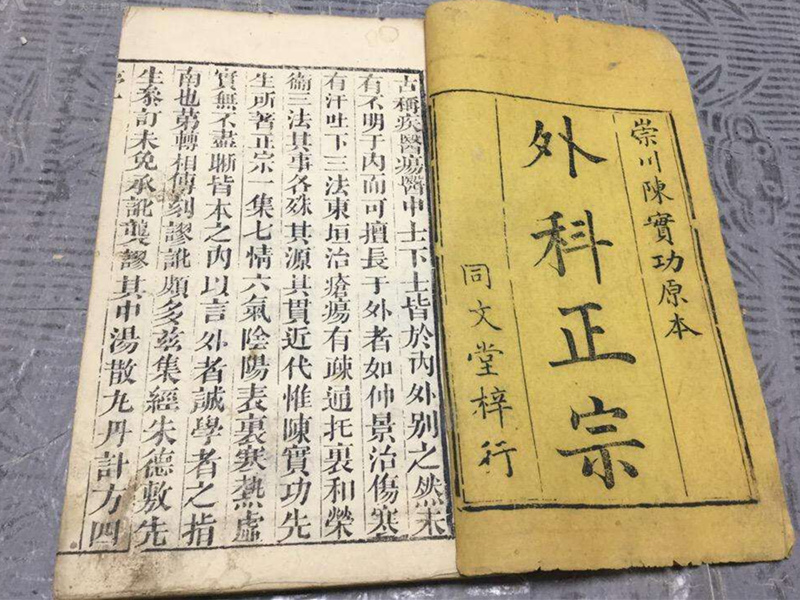 崇川陳實功原本
外科正宗
同文堂梓行
古稱疾醫瘍醫中士下士皆於內外別之然未
有不明于內而可擅長于外者如仲景治傷寒
有汗吐下三法東垣治瘡瘍有疎通托裏和榮
衞三法其事各殊其源其貫近代惟陳實功先
生所著正宗一集七情六氣陰陽表裏寒熱虛
實無不盡晰皆本之內以言外者誠學者之指
南也第轉相傳刻謬訛頗多茲集經朱德敷先
生叅訂未免承訛襲謬其中湯散丸丹計方四